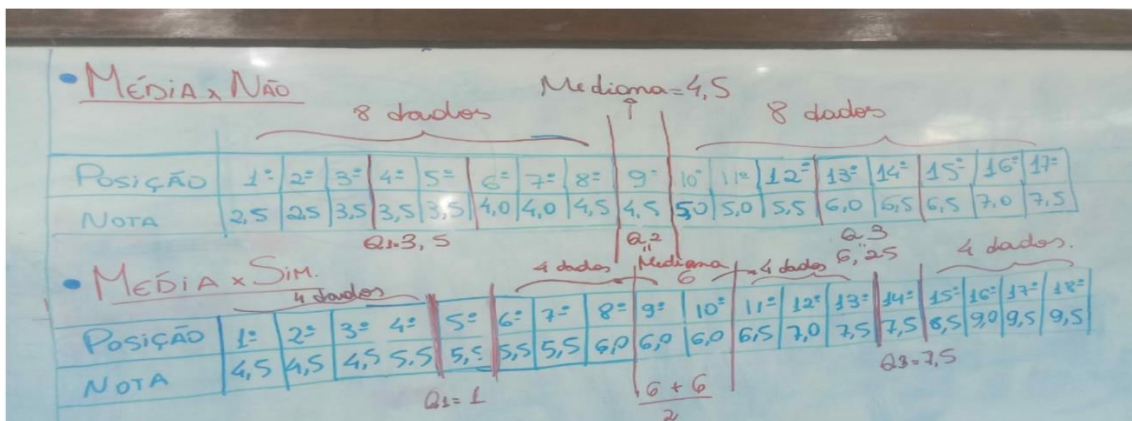 • MÉDIA x NÃO
Mediana = 4,5
8 dados 8 dados
POSIÇÃO 1º 2º 3º 4º 5º 6º 7º 8º 9º 10º 11º 12º 13º 14º 15º 16º 17º
NOTA 2,5 2,5 3,5 3,5 3,5 4,0 4,0 4,5 4,5 5,0 5,0 5,5 6,0 6,5 6,5 7,0 7,5
Q1=3,5 Q2 Q3
" "
6,25
• MÉDIA x SIM.
4 dados 4 dados Mediana 4 dados 4 dados.
6
POSIÇÃO 1º 2º 3º 4º 5º 6º 7º 8º 9º 10º 11º 12º 13º 14º 15º 16º 17º 18º
NOTA 4,5 4,5 4,5 5,5 5,5 5,5 5,5 6,0 6,0 6,0 6,5 7,0 7,5 7,5 8,5 9,0 9,5 9,5
Q1= 1 6 + 6 Q3=7,5
2